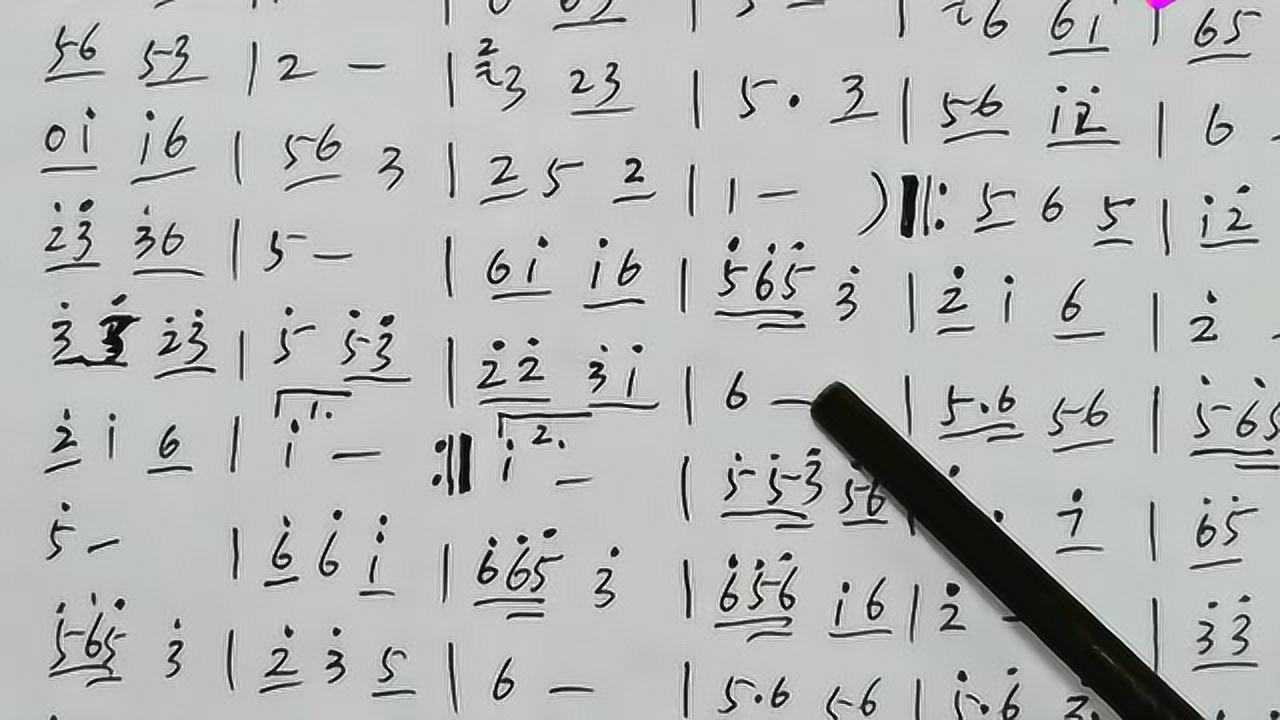 5 6 5 3 | 2 — | 2 3 2 3 | 5 · 3 | 5 6 i̇ 2̇ | 6
0 i̇ i̇ 6 | 5 6 3 | 2 5 2 | 1 — ) ‖: 5 6 5 | i̇ 2̇
2̇ 3̇ 3̇ 6 | 5 — | 6 i̇ i̇ 6 | 5̇ 6̇ 5̇ 3̇ | 2̇ i̇ 6 | 2̇
3̇ 3̇ 2̇ 3̇ | 5̇ 5̇ 3̇ | 2̇ 2̇ 3̇ i̇ | 6 — | 5 · 6 5 6 | 5̇ 6̇ 5̇
2̇ i̇ 6 | 1. i̇ — :‖ 2. i̇ — | 5̇ 5̇ 3̇ 5̇ 6̇ | i̇ | 6̇ 5̇
5̇ — | 6̇ 6̇ i̇ | 6̇ 6̇ 5̇ 3̇ | 6̇ 5̇ 6̇ i̇ 6 | 2̇ — | 3̇ 3̇
5̇ 6̇ 5̇ 3̇ | 2̇ 3̇ 5 | 6 — | 5 · 6 5 6 | i̇ · 6̇ 3